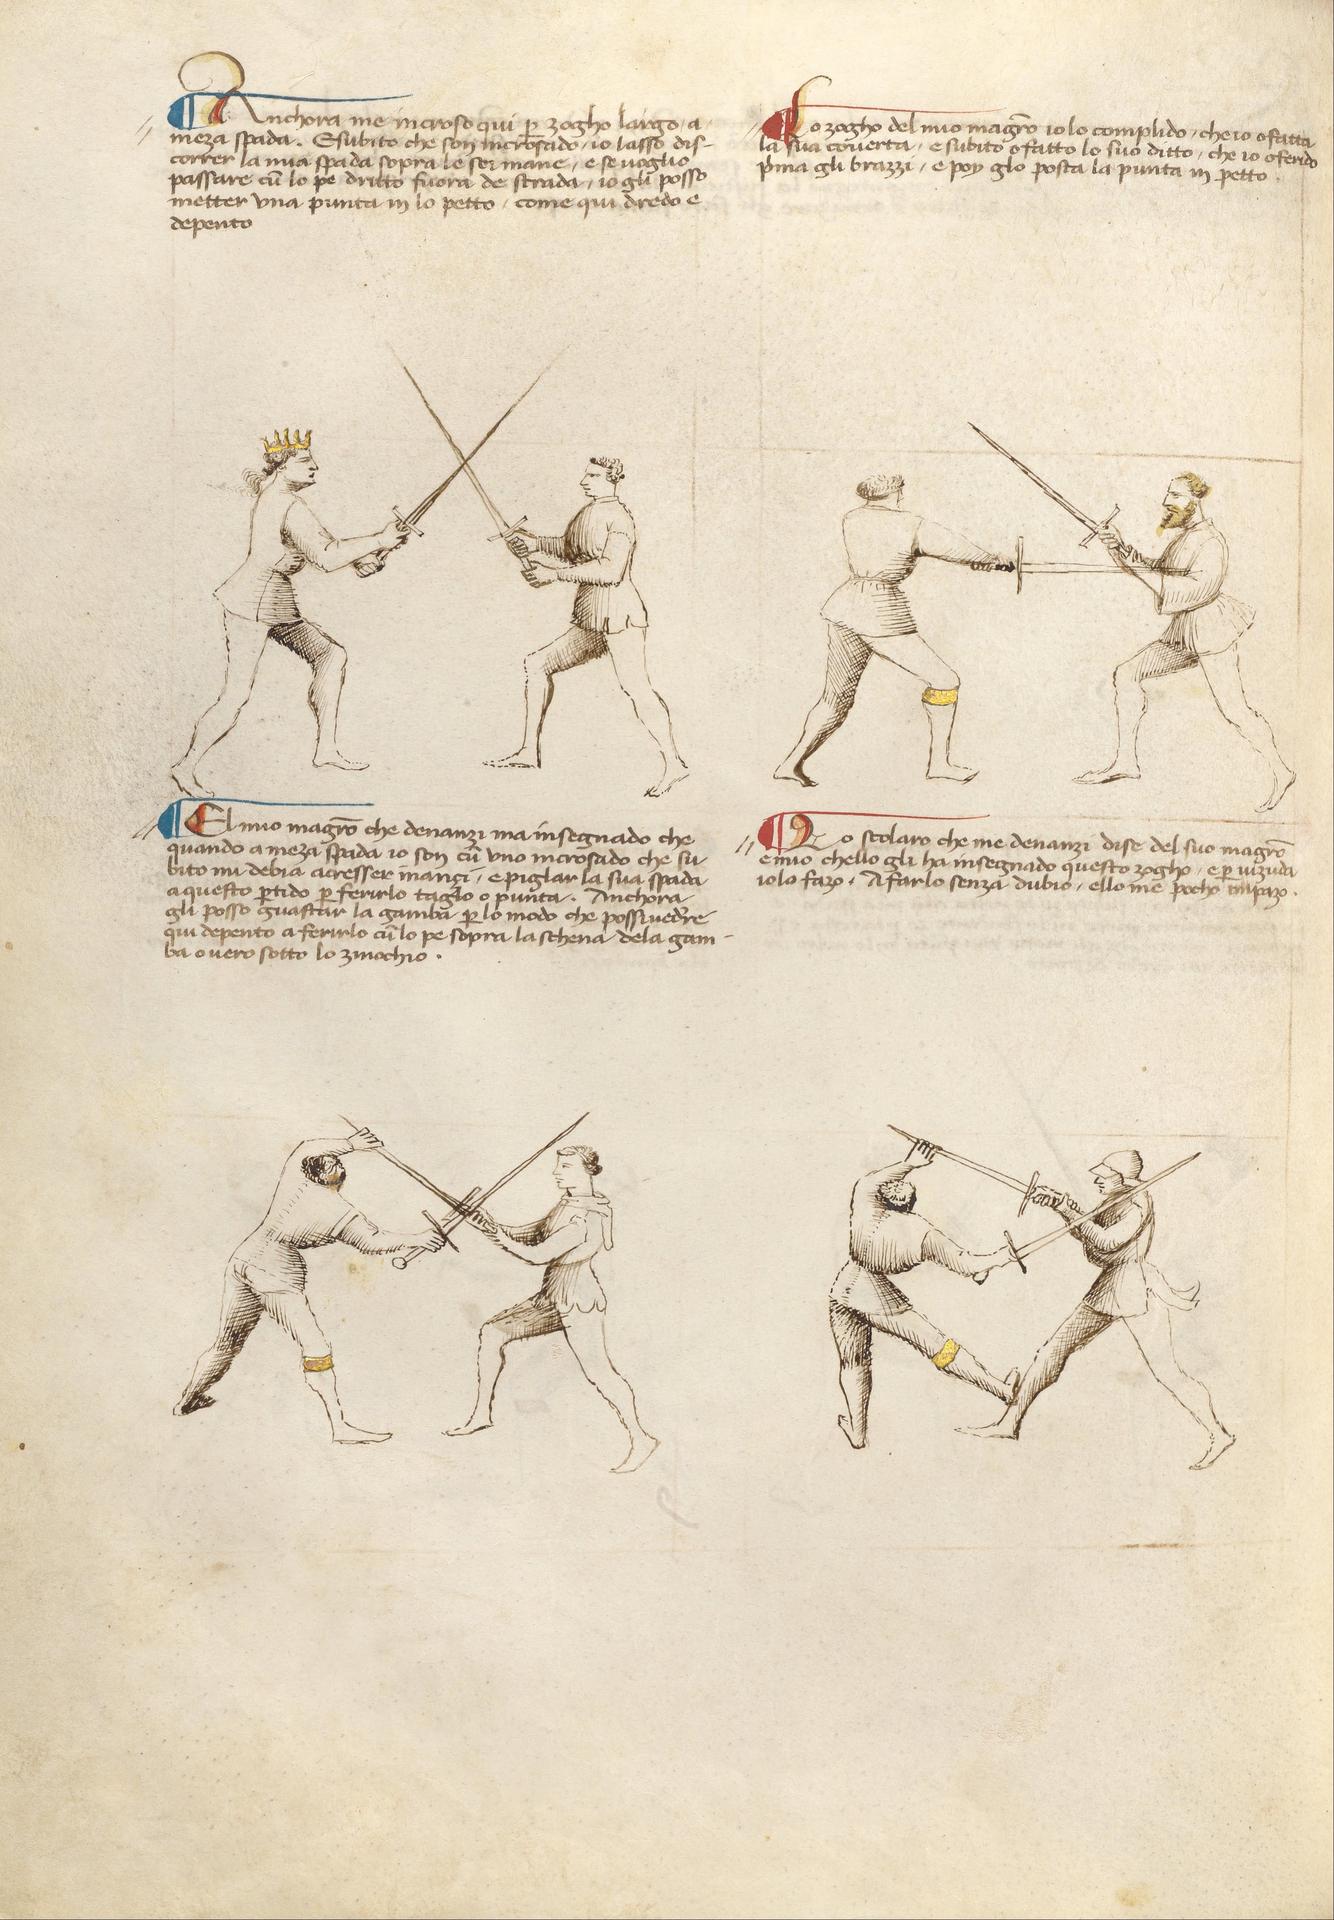 Anchora me incroso qui p zogho largo, a
meza spada. E subito che son incrosado, io lasso dis-
correr la mia spada sopra le soi mane, e se voglio
passare cū lo pe dritto fuora de strada, io gli posso
metter una punta in lo petto, come qui dredo e
depento
Lo zogho del mio magrō io lo complido, che io o fatta
la sua coverta, e subito o fatto lo suo ditto, che io o ferido
pma gli brazzi, e poy glo posta la punta in petto.
El mio magrō che denanzi ma insegnado che
quando a meza spada io son cū uno incrosado che su-
bito mi debia acresser inanci, e piglar la sua spada
a questo ptido p ferirlo taglo o punta. Anchora
gli posso guastar la gamba p lo modo che possi vedre
qui depento a ferirlo cū lo pe sopra la schena dela gam-
ba overo sotto lo zinochio.
Lo scolaro che me denanzi dise del suo magrō
e mio chello gli ha insegnado questo zogho, e p vizuda
io lo fazo. A farlo senza dubio, ello me pocho impazo.